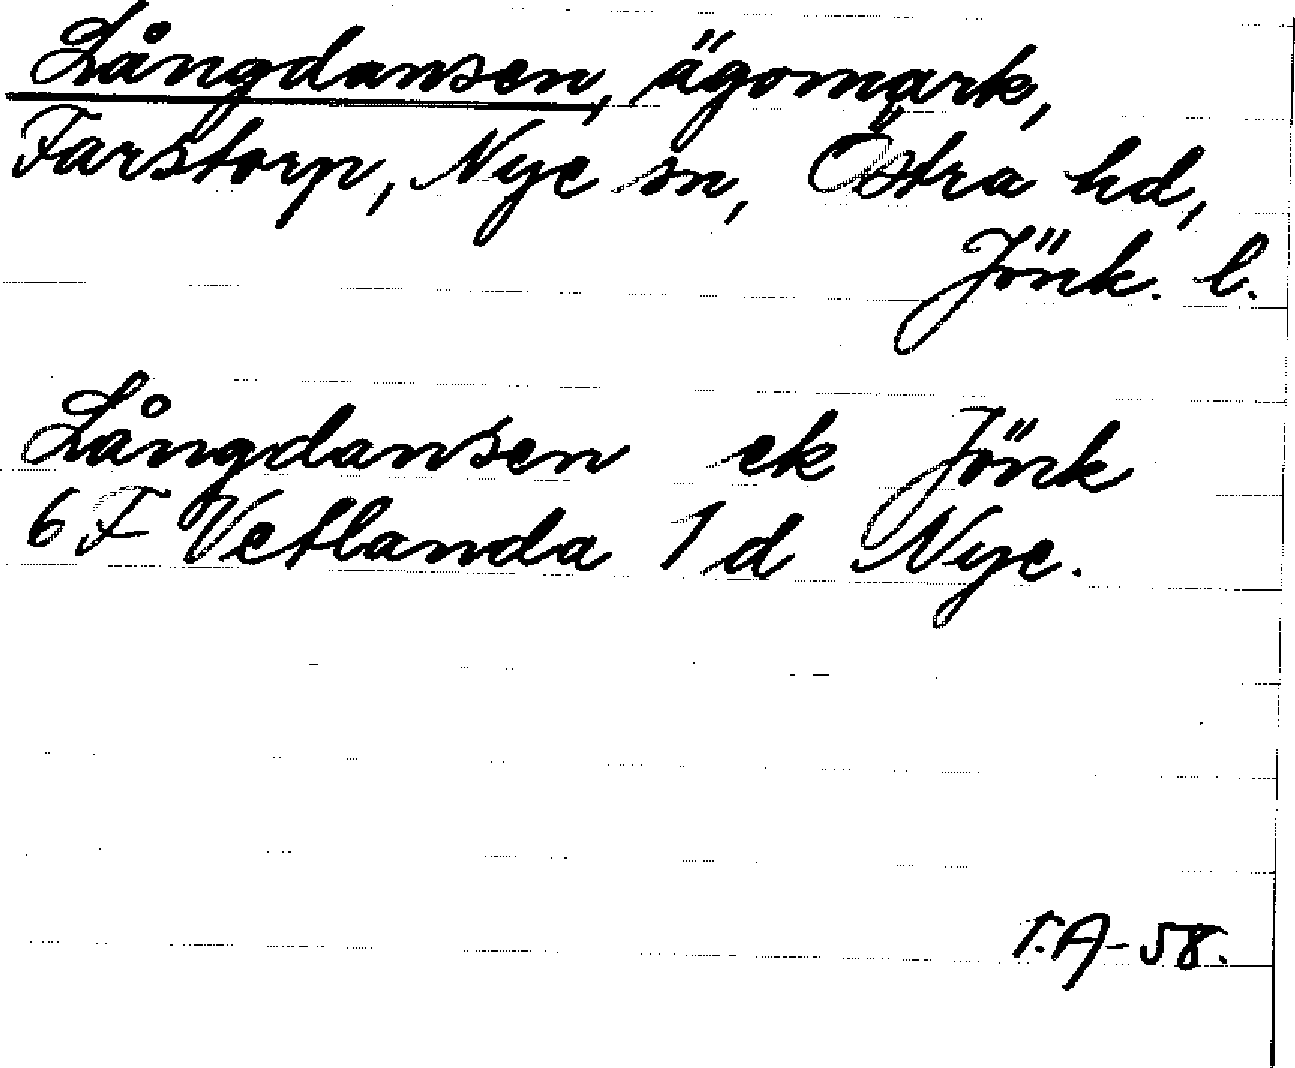 Långdansen, ägomark,
Farstorp, Nye sn, Östra hd,
Jönk. l.
Långdansen ek Jönk
6 F Vetlanda 1 d Nye.
T.A-58.